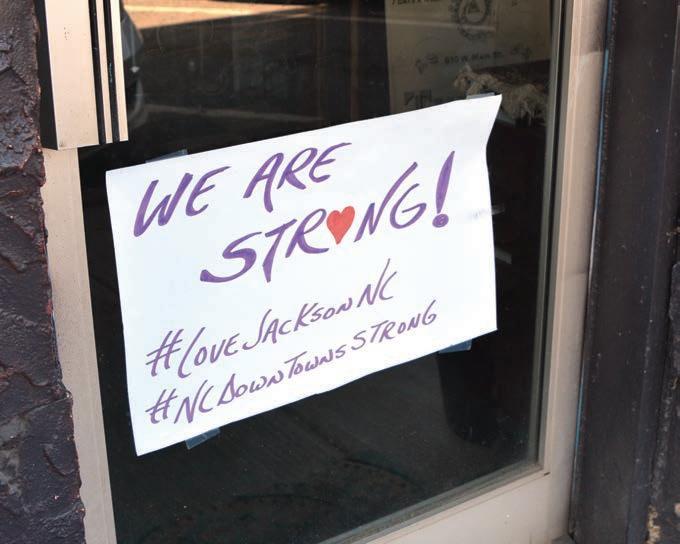 WE ARE
STR♥NG!
#LOVEJACKSONNC
#NCDOWNTOWNSSTRONG
610 W. Main St.